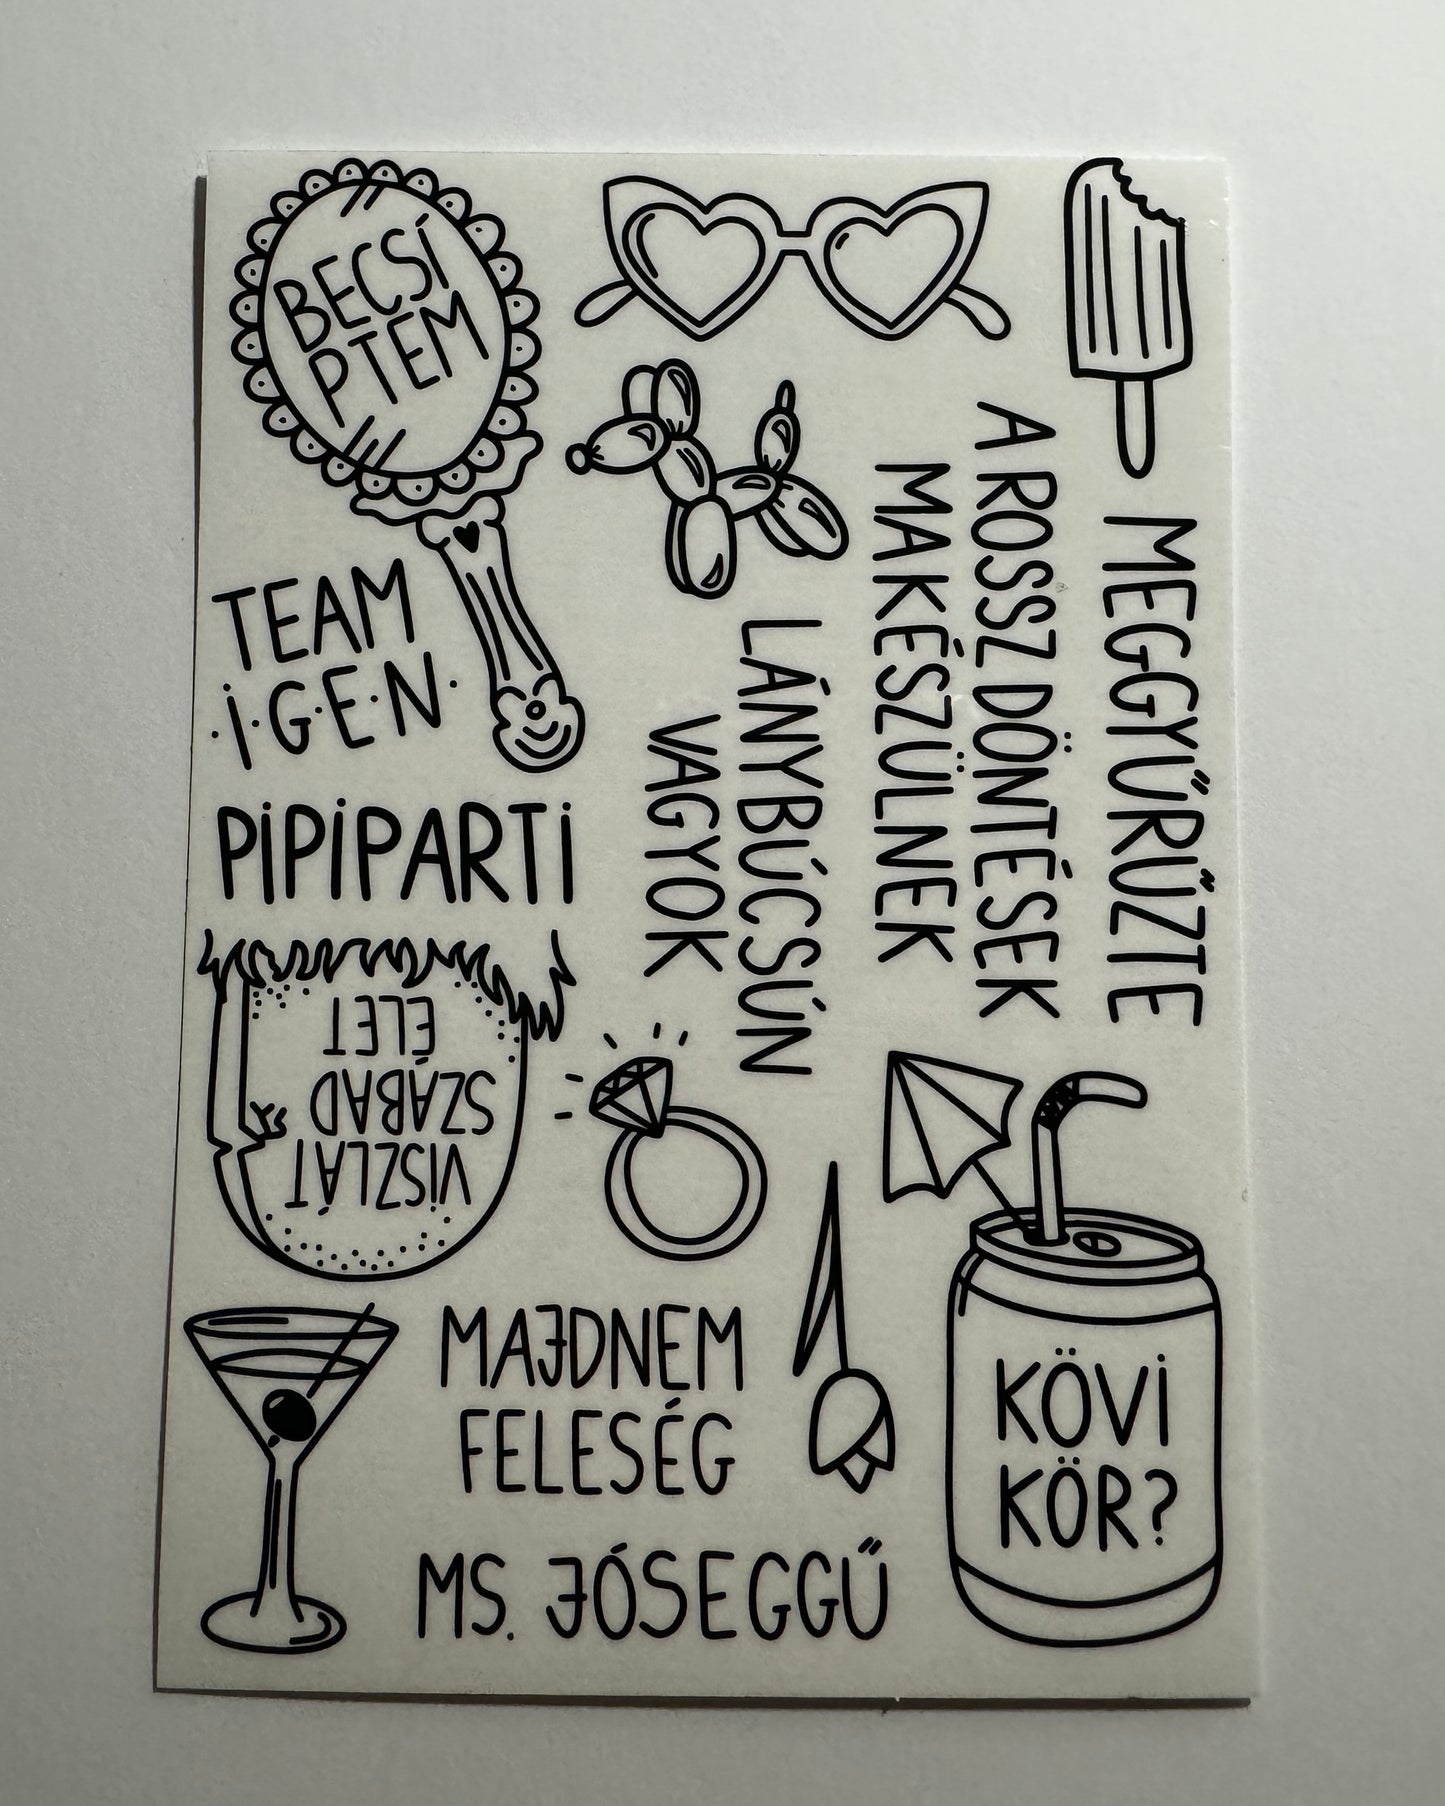 BECSÍ
PTEM
TEAM
·I·G·E·N·
PIPIPARTI
VISZLÁT
SZABAD
ÉLET
MEGGYŰRŰZTE
A ROSSZ DÖNTÉSEK
MAKÉSZÜLNEK
LÁNYBÚCSÚN
VAGYOK
MAJDNEM
FELESÉG
MS. JÓSEGGŰ
KÖVI
KÖR?